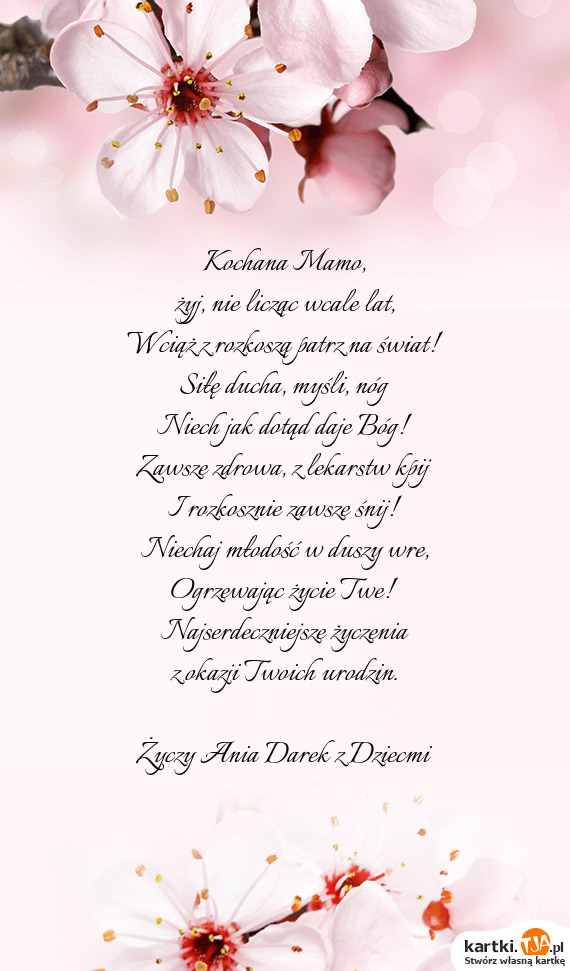 Kochana Mamo,
żyj, nie licząc wcale lat,
Wciąż z rozkoszą patrz na świat!
Siłę ducha, myśli, nóg
Niech jak dotąd daje Bóg!
Zawsze zdrowa, z lekarstw kpij
I rozkosznie zawsze śnij!
Niechaj młodość w duszy wre,
Ogrzewając życie Twe!
Najserdeczniejsze życzenia
z okazji Twoich urodzin.
Życzy Ania Darek z Dziecmi
kartki.TJA.pl
Stwórz własną kartkę